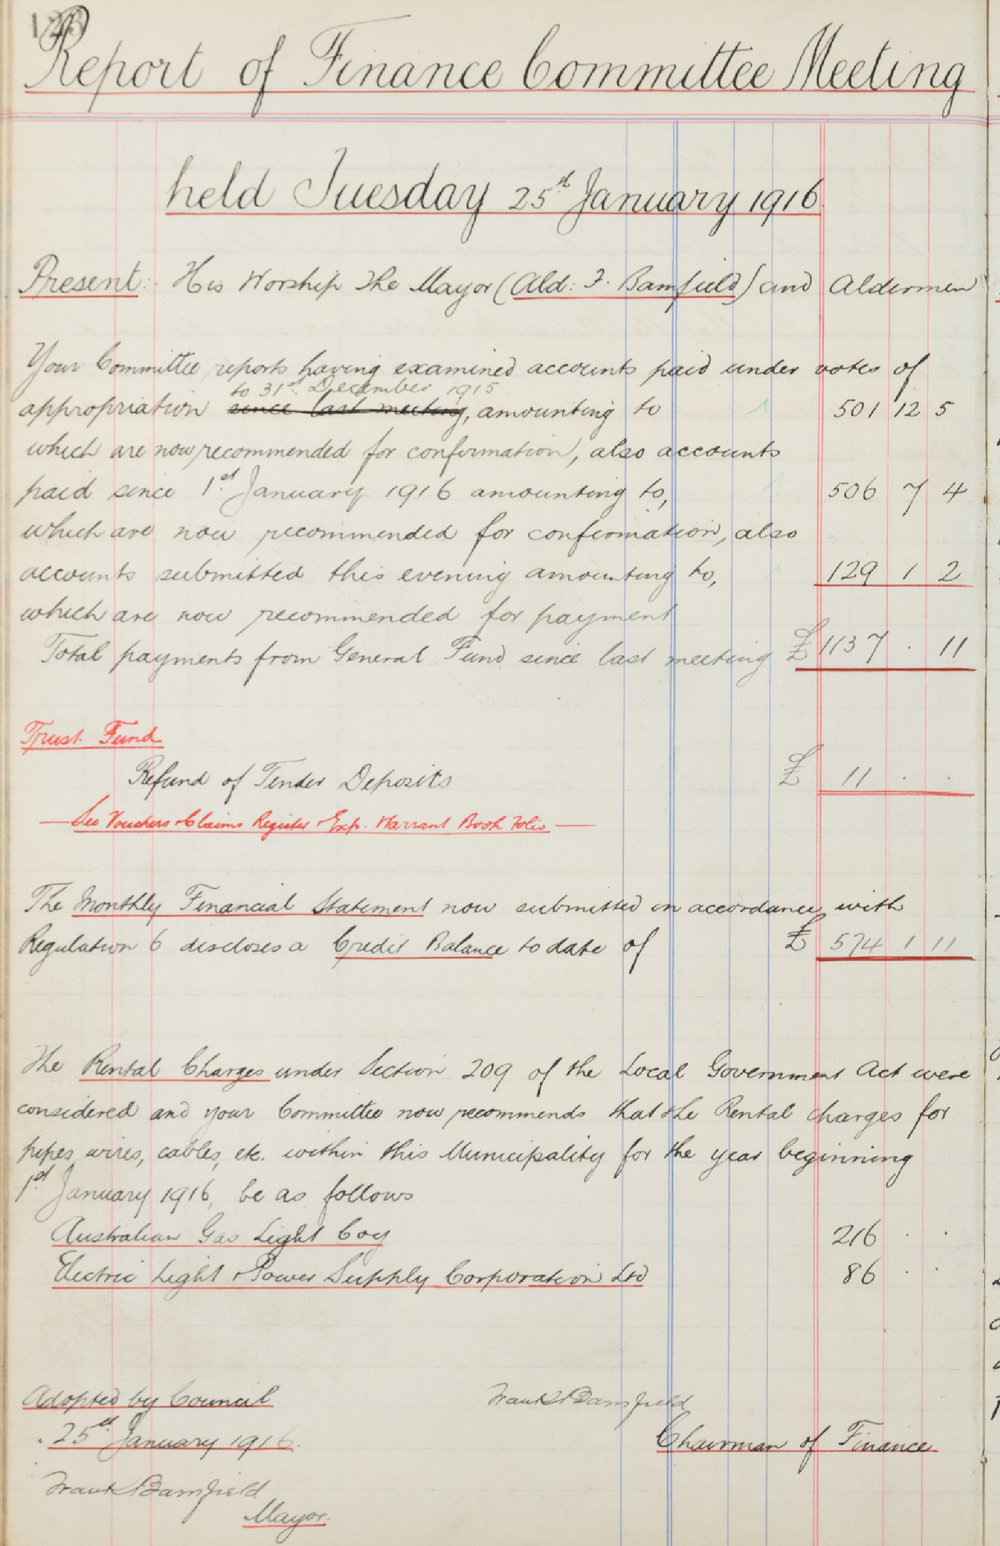 Report of Finance Committee Meeting
held Tuesday 25th January 1916
Present:- His Worship The Mayor (Ald: F. Bamfield) and Aldermen
Your Committee reports having examined accounts paid under votes of
to 31st December 1915
appropriation since last meeting, amounting to 501 12 5
which are now recommended for confirmation, also accounts
paid since 1st January 1916 amounting to, 506 7 4
which are now recommended for confirmation, also
accounts submitted this evening amounting to, 129 1 2
which are now recommended for payment
Total payments from General Fund since last meeting £ 1137 . 11
Trust Fund
Refund of Tender Deposits £ 11 . .
See Vouchers & Claims Register & Exp. Warrant Book Folio
The Monthly Financial Statement now submitted in accordance with
Regulation 6 discloses a Credit Balance to date of £ 574 1 11
The Rental Charges under Section 209 of the Local Government Act were
considered and your Committee now recommends that the Rental charges for
pipes, wires, cables, etc. within this Municipality for the year beginning
1st January 1916, be as follows
Australian Gas Light Coy 216 . .
Electric Light & Power Supply Corporation Ltd 86 . .
Adopted by Council Frank Bamfield
25th January 1916. Chairman of Finance
Frank Bamfield
Mayor.